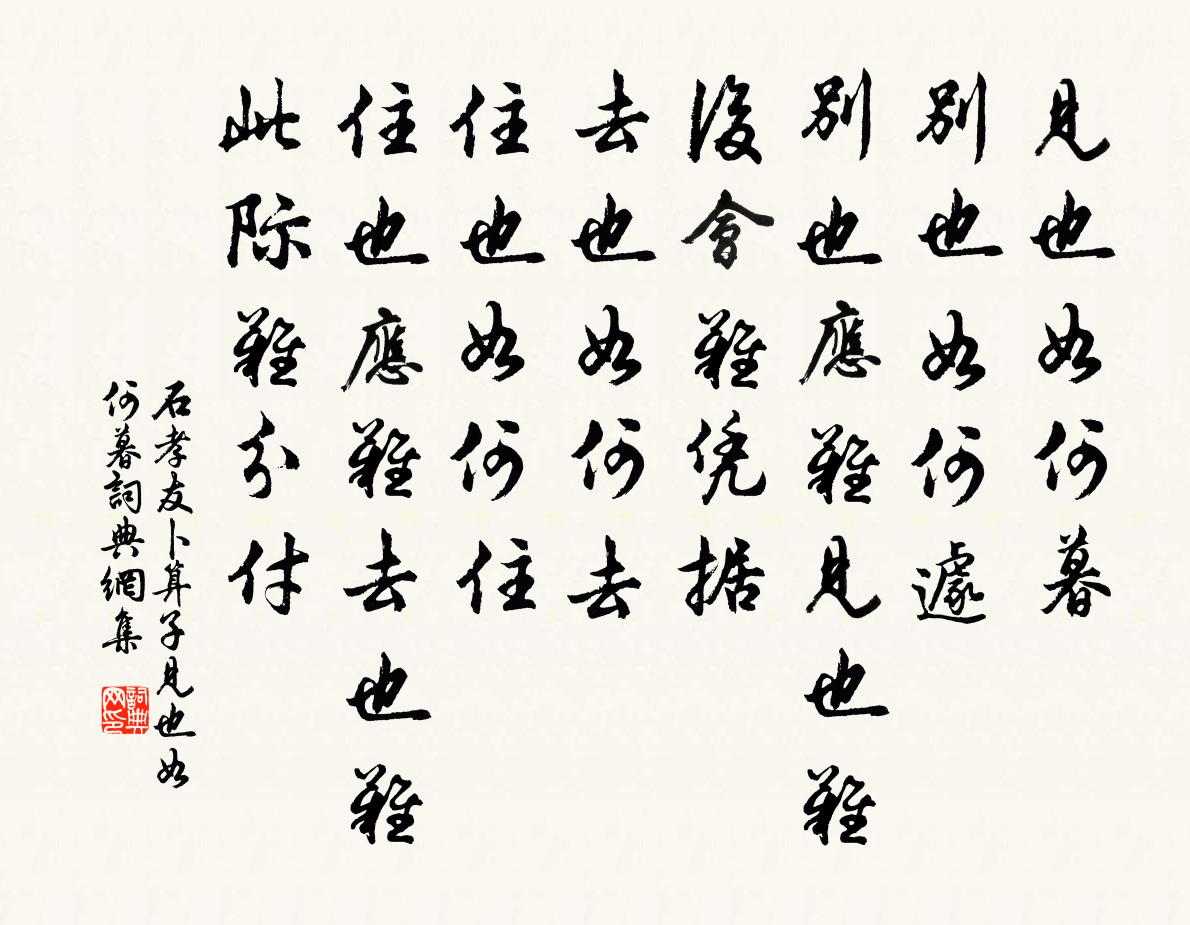 見也如何暮
別也如何遽
別也應難見也難
後會難凭据
去也如何去
住也如何住
住也應難去也難
此际難分付
石孝友卜算子見也如
何暮詞典網集
詞典网印